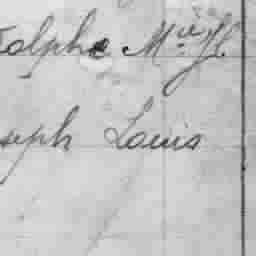 olphe M.ie
seph Louis